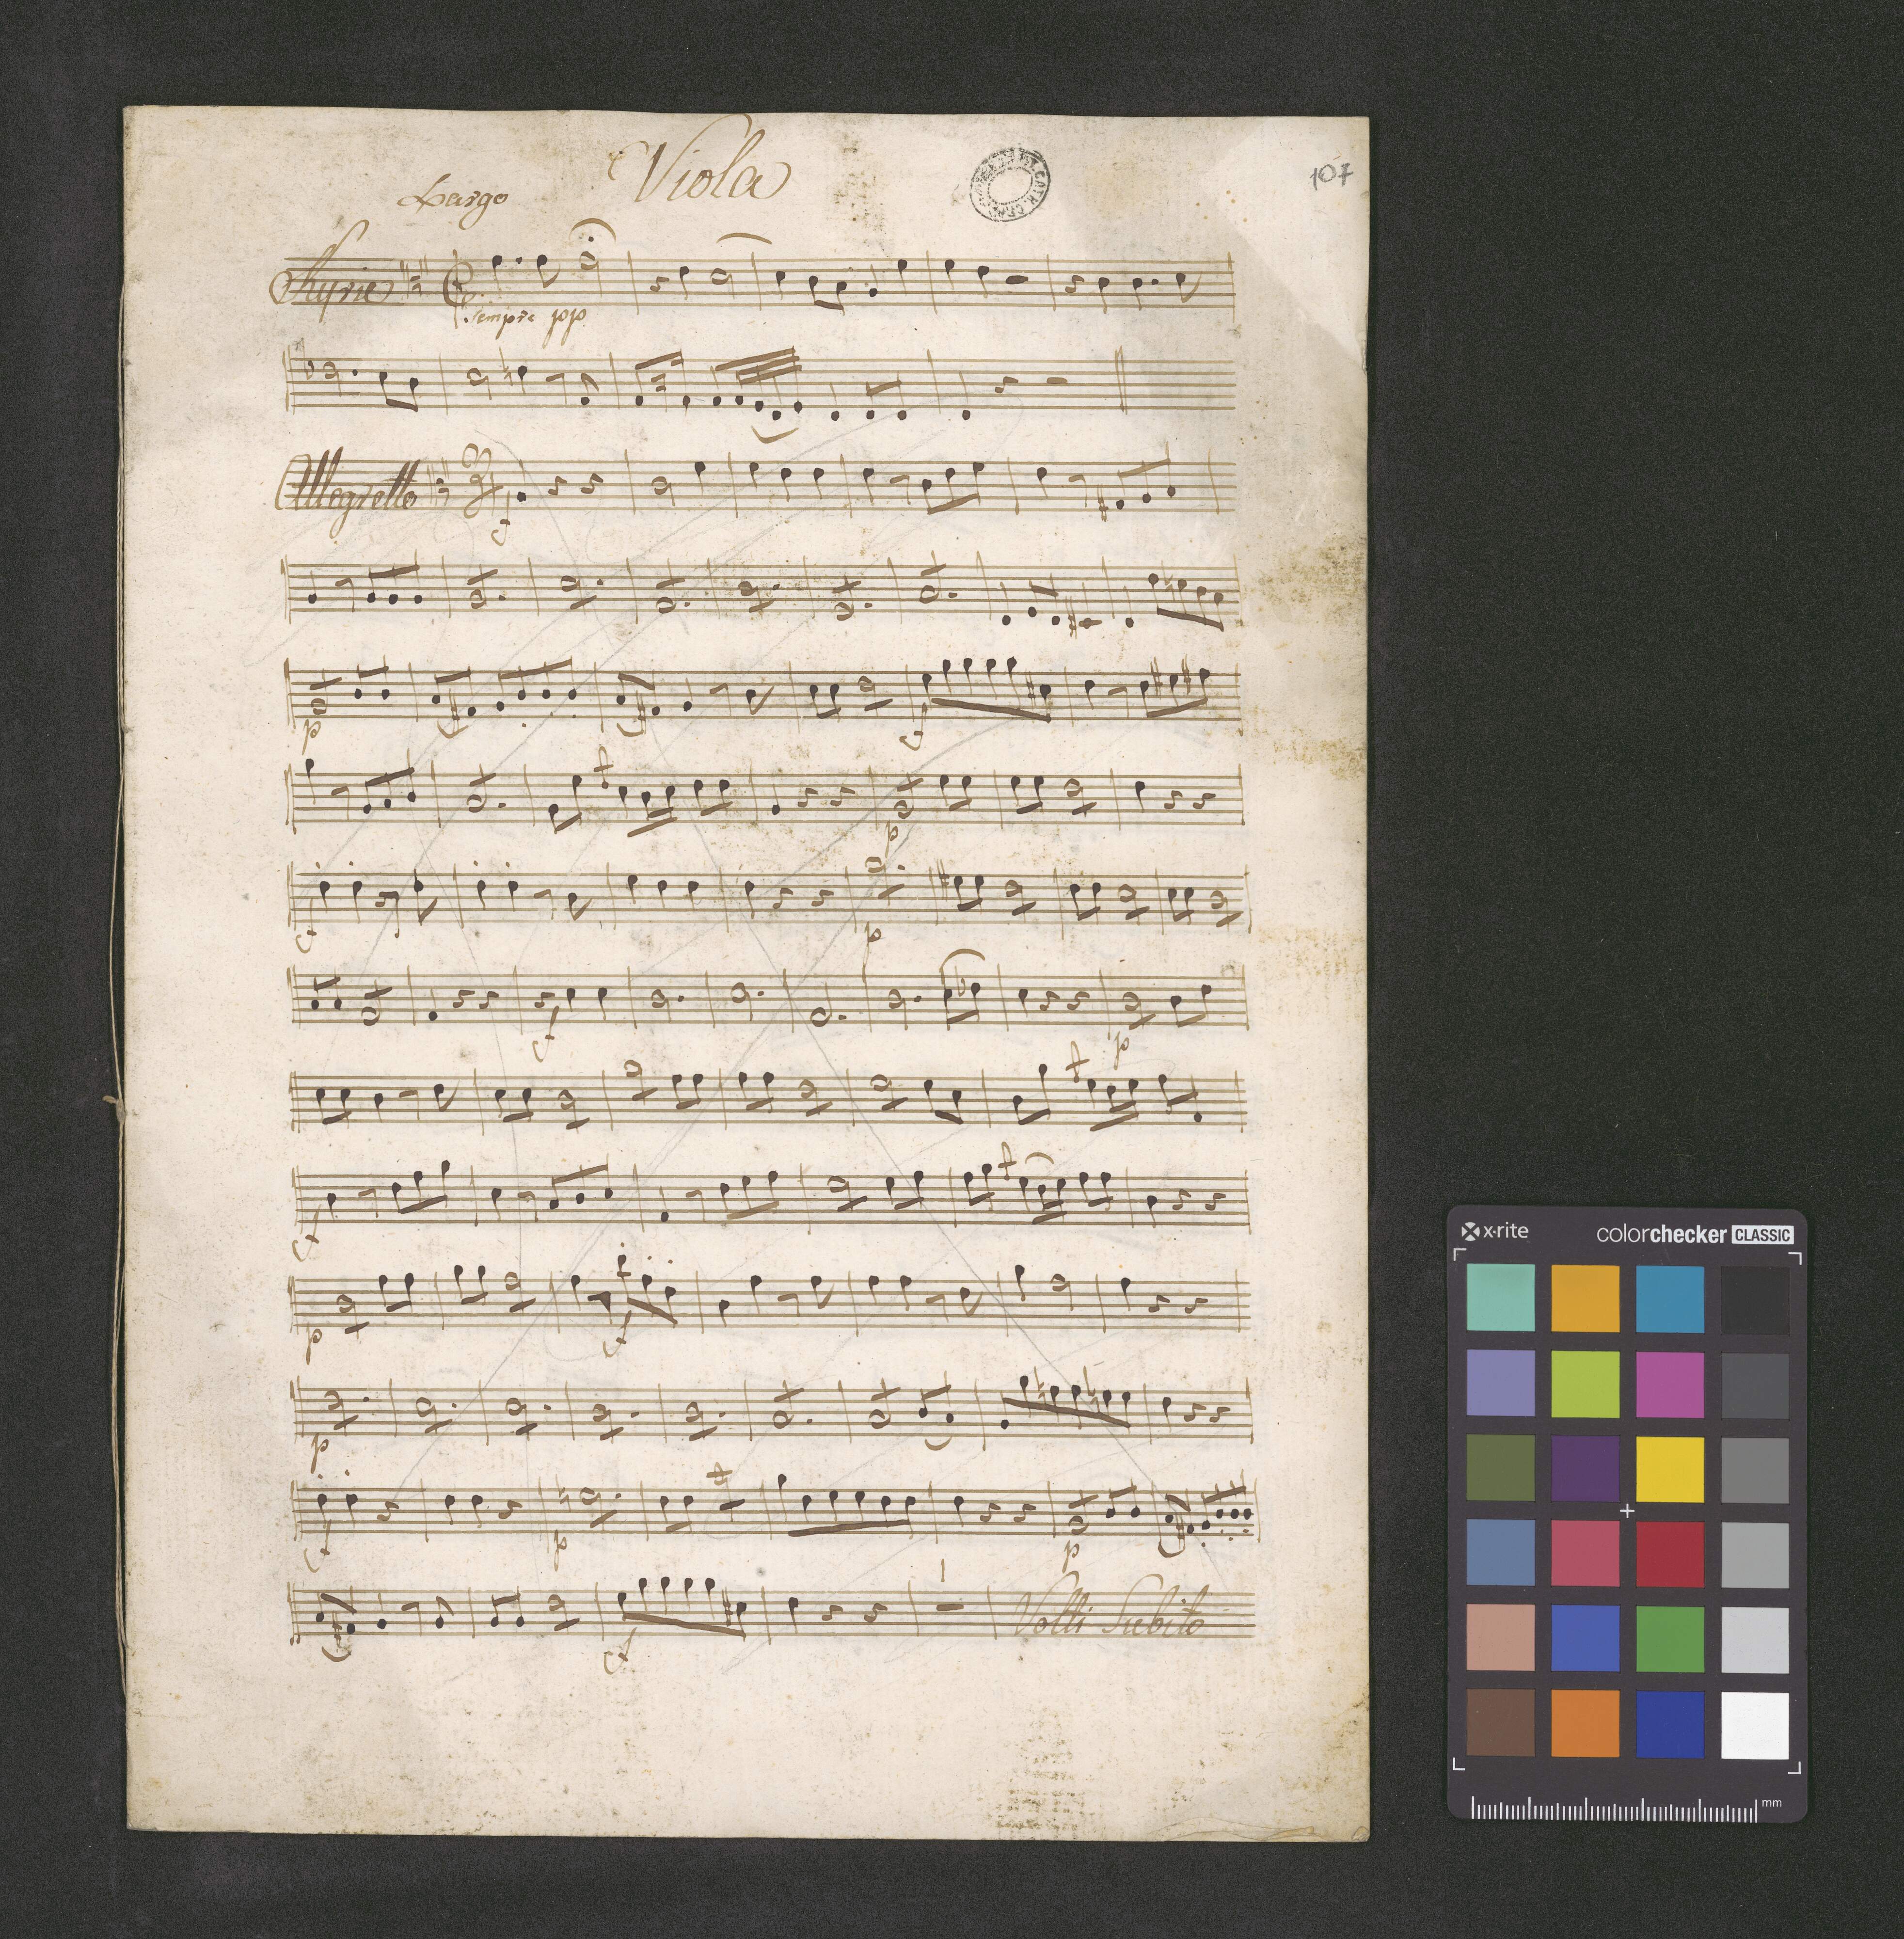 Viola
107
Largo
Kyrie
Sempre pp
Allegretto
f
p
f
f
p
f
p
f
p
f
f
f
p
f
p
f
p
p
f
Volti Subito
x·rite
colorchecker CLASSIC
mm